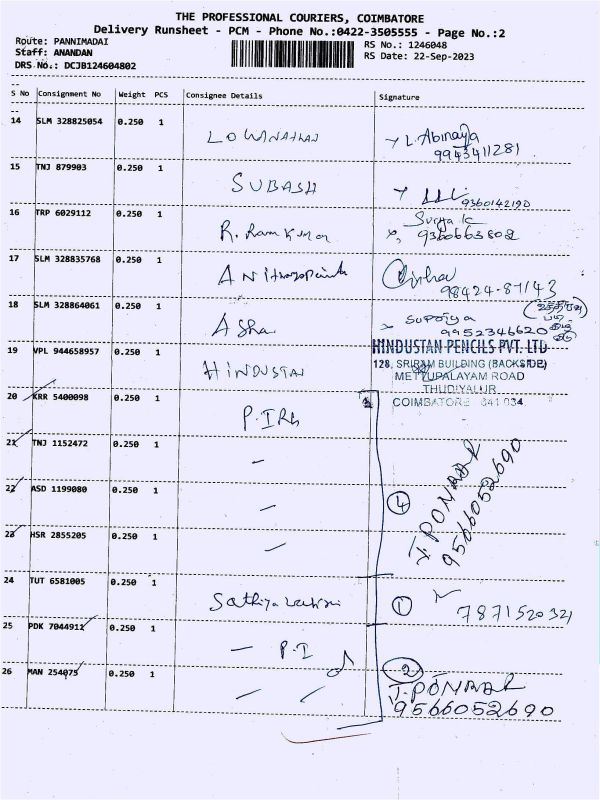 THE PROFESSIONAL COURIERS, COIMBATORE
Delivery Runsheet - PCM - Phone No.:0422-3505555 - Page No.:2
Route: PANNIMADAI
Staff: ANANDAN
DRS No.: DCJB124604802
RS No.: 1246048
RS Date: 22-Sep-2023
S No Consignment No Weight PCS Consignee Details Signature
14 SLM 328825054 0.250 1 LOWANATHAN L. Abinaya
9943411281
15 TNJ 879903 0.250 1 SUBASH
9360142190
16 TRP 6029112 0.250 1 R. Ram Kumar Surya K
9360663808
17 SLM 328835768 0.250 1
98424-87143
18 SLM 328864061 0.250 1 Asha supriya
9952346620
19 VPL 944658957 0.250 1 HINDUSTAN
HINDUSTAN PENCILS PVT. LTD
128, SRIRAM BUILDING (BACKSIDE)
METTUPALAYAM ROAD
THUDIYALUR
COIMBATORE 641 034
20 KRR 5400098 0.250 1
21 TNJ 1152472 0.250 1 —
22 ASD 1199080 0.250 1 — 4
23 HSR 2855205 0.250 1 —
T. PONNAR
9566052690
24 TUT 6581005 0.250 1 1 7871520321
25 PDK 7044912 0.250 1 — P.I
26 MAN 254075 0.250 1 — 2
T. PONNAR
9566052690